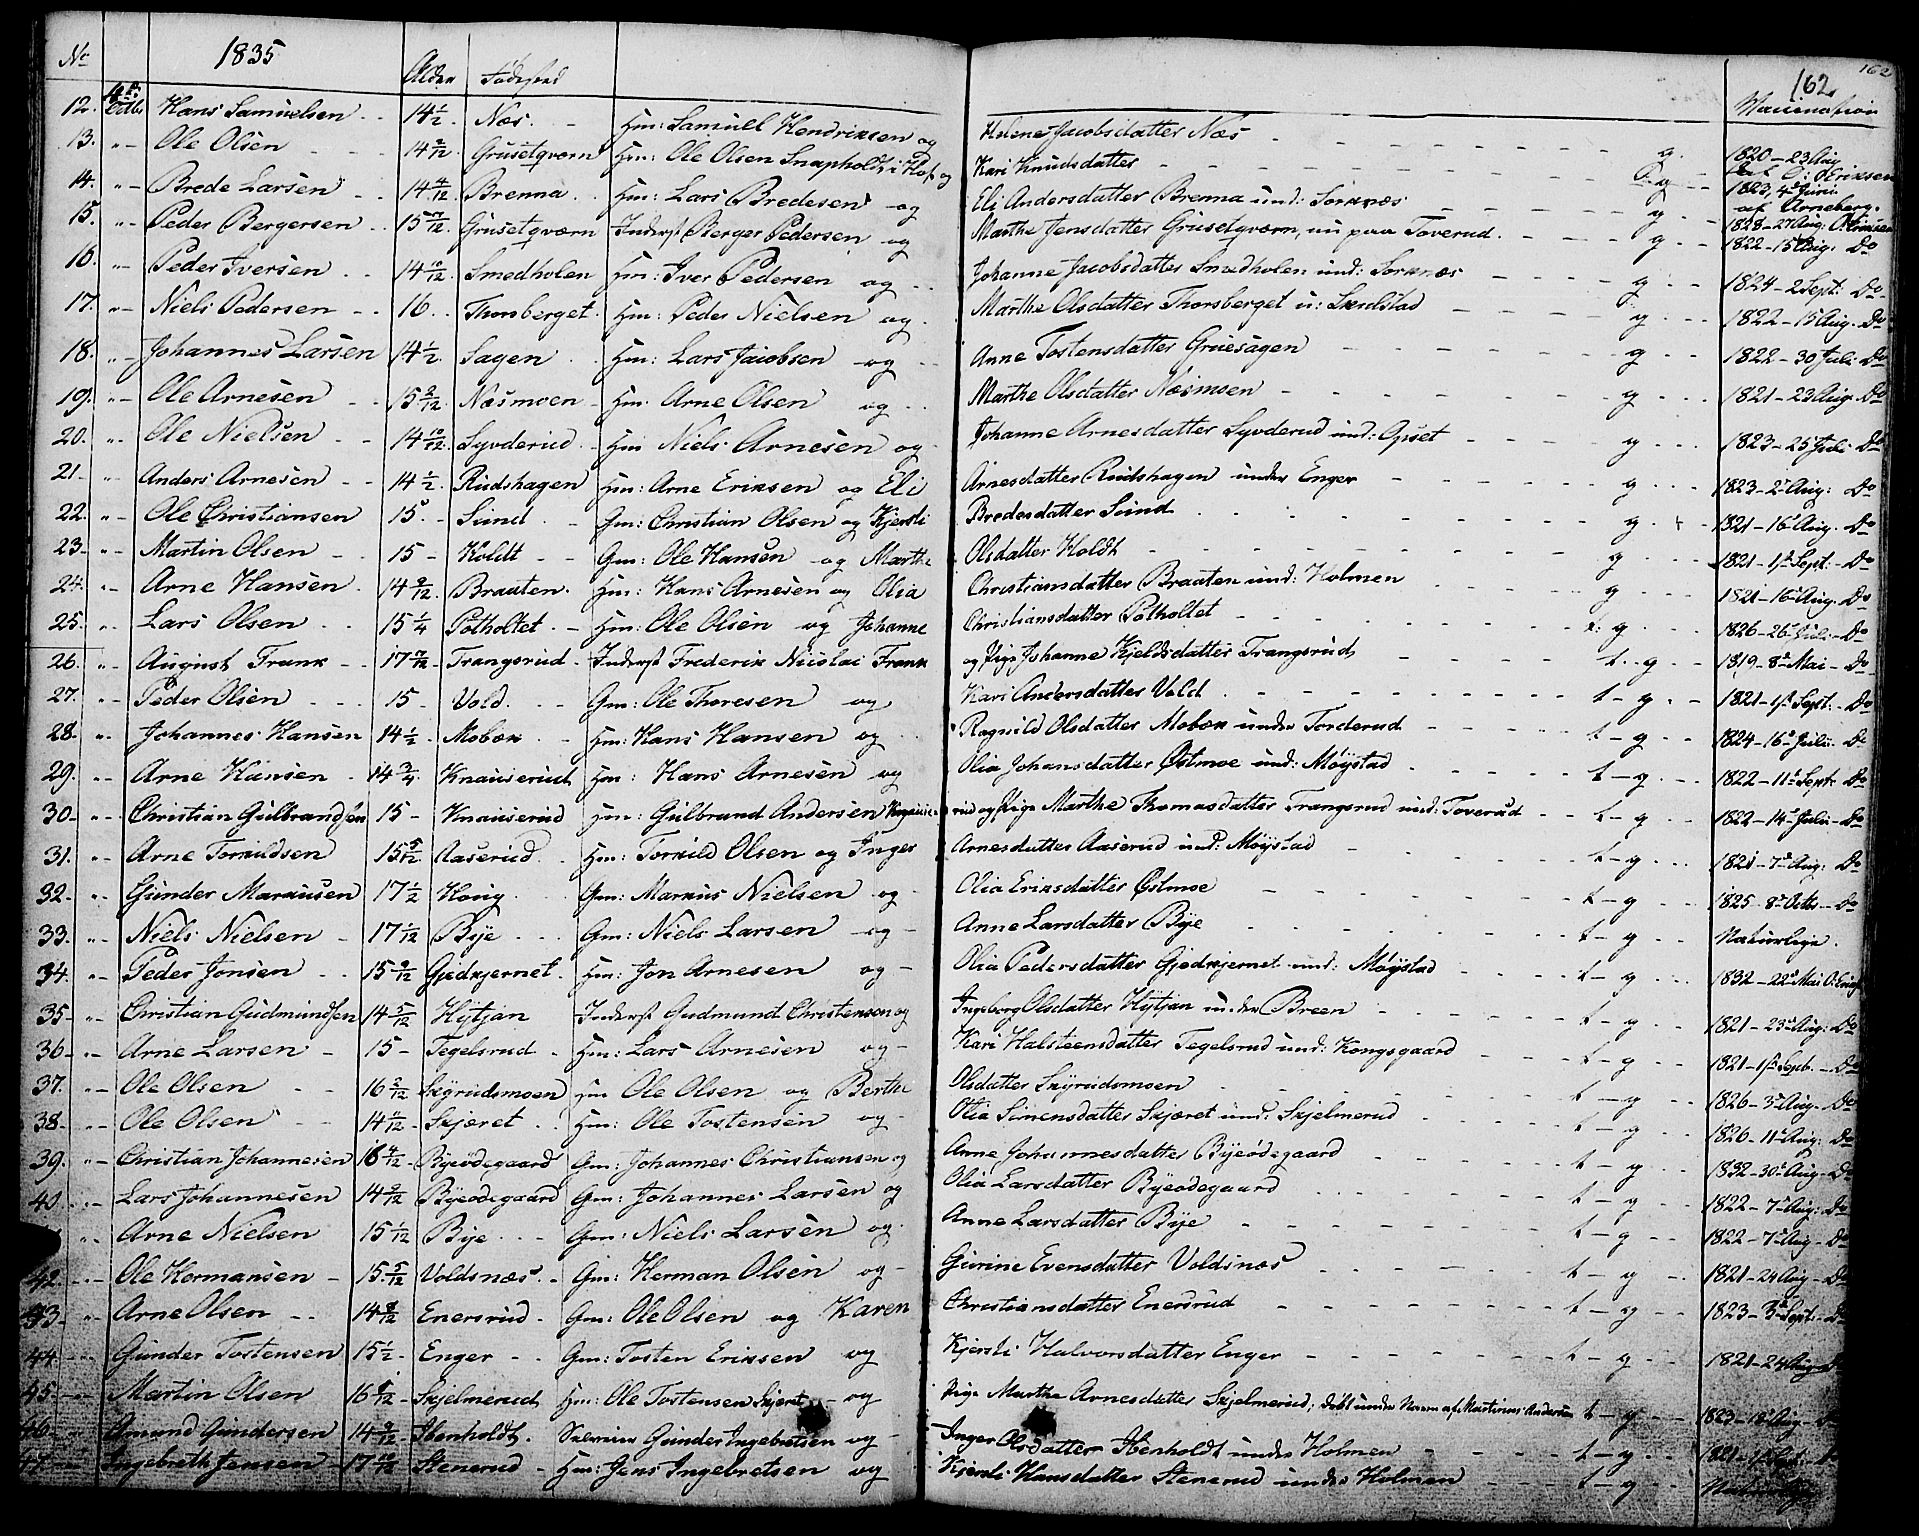 162
No 1835 Alder Fødested 162 Vaccination
12. 4de Octbr Hans Samuelsen 14 1/2 Næs Hm: Samuel Hendriksen og Helene Jacobsdatter Næs g. 1820 – 23 Aug
13. " Ole Olsen 14 9/12 Grusetqværn Hm: Ole Olsen Snapholdt i Hof og Kari Knudsdatter g 1823, 4de Juni af Arneberg.
14. " Brede Larsen 14 4/12 Brenna Hm: Lars Bredesen og Eli Andersdatter Brenna und: Sorknæs g 1828 – 27 Aug: O. Eriksen
15. " Peder Bergersen 15 7/12 Grusetqværn Inderst Berger Pedersen og Marthe Jensdatter Grusetqværn, nu paa Toverud g 1822 – 15 Aug: Do
16. " Peder Iversen 14 10/12 Smedholen Hm: Iver Pedersen og Johanne Jacobsdatter Smedholen und: Sorknæs g 1824 – 2 Sept: Do
17. " Niels Pedersen 16 Thorsberget Hm: Peder Nielsen og Marthe Olsdatter Thorsberget u: Skulstad g 1822 – 15 Aug. Do
18. " Johannes Larsen 14 1/2 Sagen Hm: Lars Jacobsen og Anne Tostensdatter Gruesagen g 1822 – 30 Juli Do
19. " Ole Arnesen 15 2/12 Næsmoen Hm. Arne Olsen og Marthe Olsdatter Næsmoen g 1821 – 23 Aug Do
20. " Ole Nielsen 14 10/12 Syvderud Hm Niels Arnesen og Johanne Arnesdatter Syvderud und: Opset g 1823 – 25 Juli Do
21. " Anders Arnesen 14 1/2 Rudshagen Hm: Arne Eriksen og Eli Arnesdatter Rudshagen under Enger g 1823 – 2 Aug: Do
22. " Ole Christiansen 15 Sund Gm: Christian Olsen og Kjersti Bredesdatter Sund g 1821 – 16 Aug. Do
23. " Martin Olsen 15 Holdt Gm: Ole Hansen og Marthe Olsdatter Holdt g 1821 – 1ste Sept: Do
24. " Arne Hansen 14 9/12 Braaten Hm: Hans Arnesen og Olia Christiansdatter Braaten und: Holmen g 1821 – 16 Aug. Do
25. " Lars Olsen 15 1/4 Potholtet Hm: Ole Olsen og Johanne Christiansdatter Potholtet t. g 1826 – 26 Juli Do
26. " August Frank 17 7/12 Trangsrud Inderst Frederik Nicolai Frank og Pige Johanne Kjeldsdatter Trangsrud t. g 1819 – 8de Mai Do
27. " Peder Olsen 15 Vold Gm: Ole Thoresen og Kari Andersdatter Vold t – g 1821 – 1ste Sept. Do
28. " Johannes Hansen 14 1/2 Mobæk Hm: Hans Hansen og Ragnild Olsdatter Mobæk under Torderud t – g 1824 – 16 Juli Do
29. " Arne Hansen 14 3/4 Knauserud Hm: Hans Arnesen og Olia Johansdatter Østmoe und: Møystad t – g 1822 – 11 Sept: Do
30. " Christian Gulbrandsen 15 Knauserud Hm: Gulbrand Andersen Knauserud og Pige Marthe Thomasdatter Trangsrud und: Toverud t – g 1822 – 14 Juli Do
31. " Arne Torkildsen 15 5/12 Aaserud Hm: Torkild Olsen og Inger Arnesdatter Aaserud und: Møystad t – g 1821 – 7de Aug: Do
32. " Gunder Markusen 17 1/2 Haug Gm: Markus Nielsen og Olia Eriksdatter Østmoe t – g 1825 – 8de Octbr Do
33. " Niels Nielsen 17 1/12 Bye Gm: Niels Larsen og Anne Larsdatter Bye t – g Naturlige.
34. " Peder Jonsen 15 9/12 Gjedkjernet Hm: Jon Arnesen og Olia Pedersdatter Gjedkjernet und: Møystad t – g 1832 – 22 Mai
35. " Christian Gudmundsen 14 5/12 Hytjan Inderst Gudmund Christensen og Ingeborg Olsdatter Hytjan under Breen t – g 1821 – 23 Aug: Do
36. " Arne Larsen 15 Tegelsrud Hm: Lars Arnesen og Kari Halsteensdatter Tegelsrud und: Kongsgaard t – g 1821 – 1ste Sept. Do
37. " Ole Olsen 16 2/12 Skyrudsmoen Hm Ole Olsen og Berthe Olsdatter Skyrudsmoen t – g 1826 – 3 Aug. Do
38. " Ole Olsen 14 1/12 Skjæret Hm: Ole Tostensen og Olia Simensdatter Skjæret und: Skjelmerud t – g 1826 – 11 Aug: Do
39. " Christian Johannesen 16 4/12 Byeødegaard Gm: Johannes Christiansen og Anne Johannesdatter Byeødegaard t – g 1832 – 30 Aug Do
40. " Lars Johannesen 14 9/12 Byeødegaard Gm: Johannes Larsen og Olia Larsdatter Byeødegaard t – g 1822 – 7 Aug: Do
" Arne Nielsen 15 1/12 Bye Gm: Niels Larsen og Anne Larsdatter Bye t – g 1822 – 7 Aug Do
42. " Ole Hermansen 15 5/12 Voldsnæs Gm: Herman Olsen og Gurine Evensdatter Voldsnæs t – g 1821 – 24 Aug Do
43. " Arne Olsen 14 8/12 Enersrud Gm: Ole Olsen og Karen Christiansdatter Enersrud t – g 1823 – 3 Sept. Do
44. " Gunder Tostensen 15 1/2 Enger Gm: Tosten Eriksen og Kjersti Halvorsdatter Enger t – g 1821 – 24 Aug
45. " Martin Olsen 16 1/12 Skjelmerud Hm: Ole Tostensen Skjæret og Pige Marthe Arnesdatter Skjelmerud, døbt under Navn af Martinus Andersen t – g 1823 – 18 Aug
46. " Amund Gundersen 14 9/12 Stenholdt Gunder Ingebretsen og Inger Olsdatter Stenholdt under Holmen t – g 1821 – 1ste Sept
47. " Ingebreth Jensen 17 10/12 Stenerud Hm: Jens Ingebretsen og Kjersti Hansdatter Stenerud under Holmen t – g Naturlige